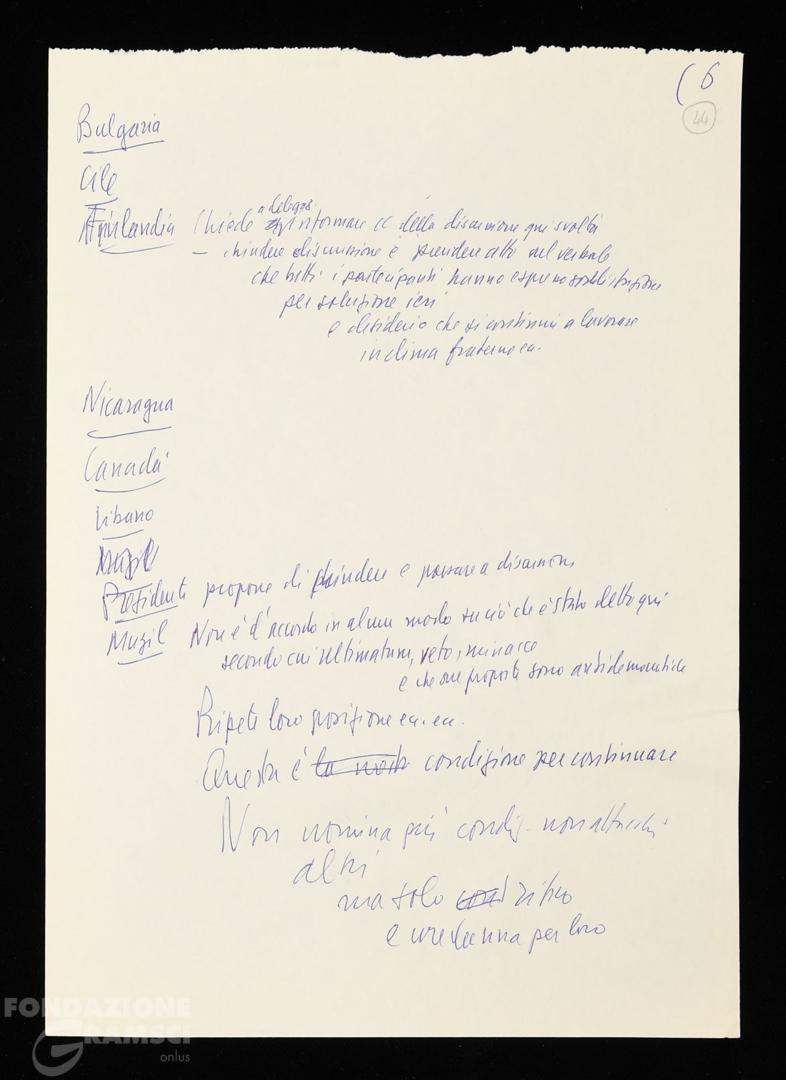 ( 6
44
Bulgaria
Cile
Finlandia Chiede a delegaz. informare CC della discussione qui svolta
– chiudere discussione e prendere atto nel verbale
che tutti i partecipanti hanno espresso soddisfazione
per soluzione ieri
e desiderio che si continui a lavorare
in clima fraterno ecc.
Nicaragua
Canadà
Libano
Muzil
Presidente propone di chiudere e passare a discussione
Muzil Non è d'accordo in alcun modo su ciò che è stato detto qui
secondo cui ultimatum, veto, minacce
e che sue proposte sono antidemocratiche
Ripete loro posizione ecc. ecc.
Questa è la condizione per continuare
Non nomina più condiz. non attacchi
altri
ma solo ritiro
e condanna per loro
FONDAZIONE
GRAMSCI
onlus